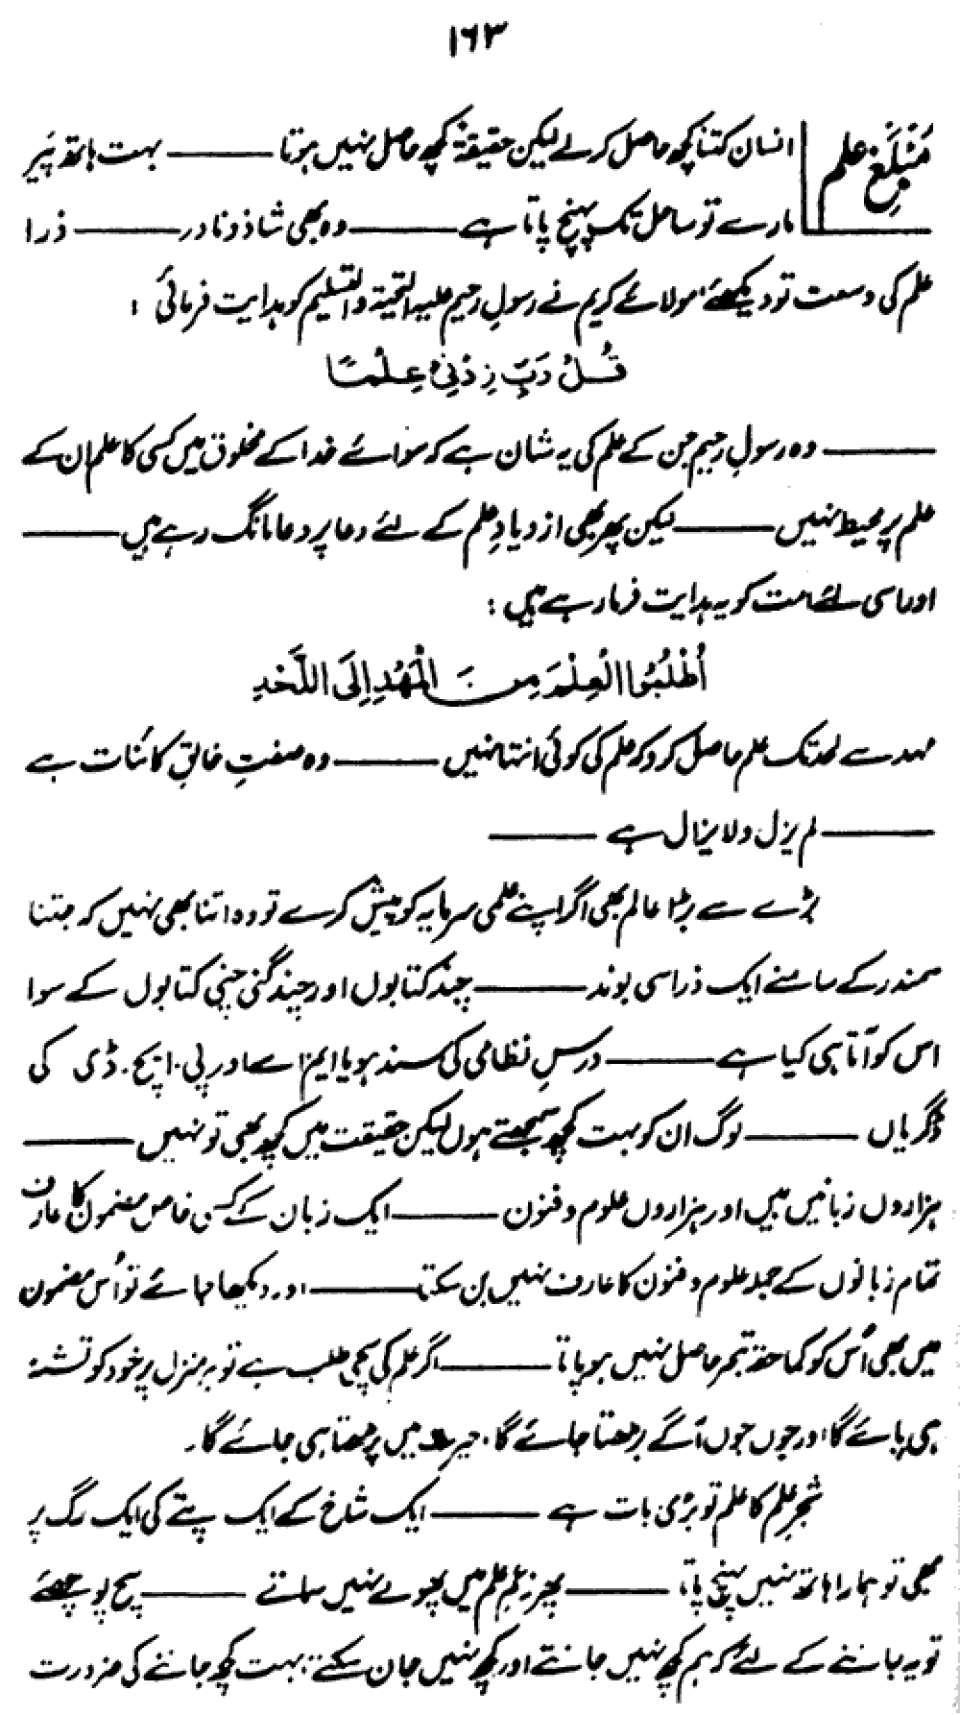 ۱۶۳
مَبْلَغِ علم
انسان کتنا کچھ حاصل کرلے لیکن حقیقۃً کچھ حاصل نہیں ہوتا ——— بہت ہاتھ پَیر
مارے تو ساحل تک پہنچ پاتا ہے ——— وہ بھی شاذ و نادر ——— ذرا
علم کی وسعت تو دیکھئے، مولائے کریم نے رسولِ رحیم علیہ التحیۃ والتسلیم کو ہدایت فرمائی :
قُلْ رَبِّ زِدْنِیْ عِلْمًا
——— وہ رسولِ رحیم جن کے علم کی یہ شان ہے کہ سوائے خدا کے مخلوق میں کسی کا علم ان کے
علم پر محیط نہیں ——— لیکن پھر بھی ازدیادِ علم کے لئے دعا پر دعا مانگ رہے ہیں ———
اور اسی لئے امت کو یہ ہدایت فرما رہے ہیں :
اُطْلُبُوا الْعِلْمَ مِنَ الْمَهْدِ اِلَی اللَّحْدِ
مہد سے لحد تک علم حاصل کرو کہ علم کی کوئی انتہا نہیں ——— وہ صفتِ خالقِ کائنات ہے
——— لم یزل ولا یزال ہے ———
بڑے سے بڑا عالم بھی اگر اپنے علمی سرمایہ کو پیش کرے تو وہ اتنا بھی نہیں کہ جتنا
سمندر کے سامنے ایک ذرا سی بوند ——— چند کتابوں اور چند گنی چنی کتابوں کے سوا
اس کو آتا ہی کیا ہے ——— درسِ نظامی کی سند ہو یا ایم اے اور پی۔ ایچ۔ ڈی کی
ڈگریاں ——— لوگ ان کو بہت کچھ سمجھتے ہوں لیکن حقیقت میں کچھ بھی تو نہیں ———
ہزاروں زبانیں ہیں اور ہزاروں علوم و فنون ——— ایک زبان کے کسی خاص مضمون کا عارف
تمام زبانوں کے جملہ علوم و فنون کا عارف نہیں بن سکتا ——— اور دیکھا جائے تو اُس مضمون
میں بھی اُس کو کما حقہ تبحر حاصل نہیں ہو پاتا ——— اگر علم کی سچی طلب ہے تو ہر منزل پر خود کو تشنہ
ہی پائے گا اور جوں جوں آگے بڑھتا جائے گا، حیرت میں پڑھتا ہی جائے گا۔
شجرِ علم کا علم تو بڑی بات ہے ——— ایک شاخ کے ایک پتے کی ایک رگ پر
بھی تو ہمارا ہاتھ نہیں پہنچ پاتا، ——— پھر زعمِ علم میں پھولے نہیں سماتے ——— سچ پوچھئے
تو یہ جاننے کے لئے کہ ہم کچھ نہیں جانتے اور کچھ نہیں جان سکتے، بہت کچھ جاننے کی ضرورت